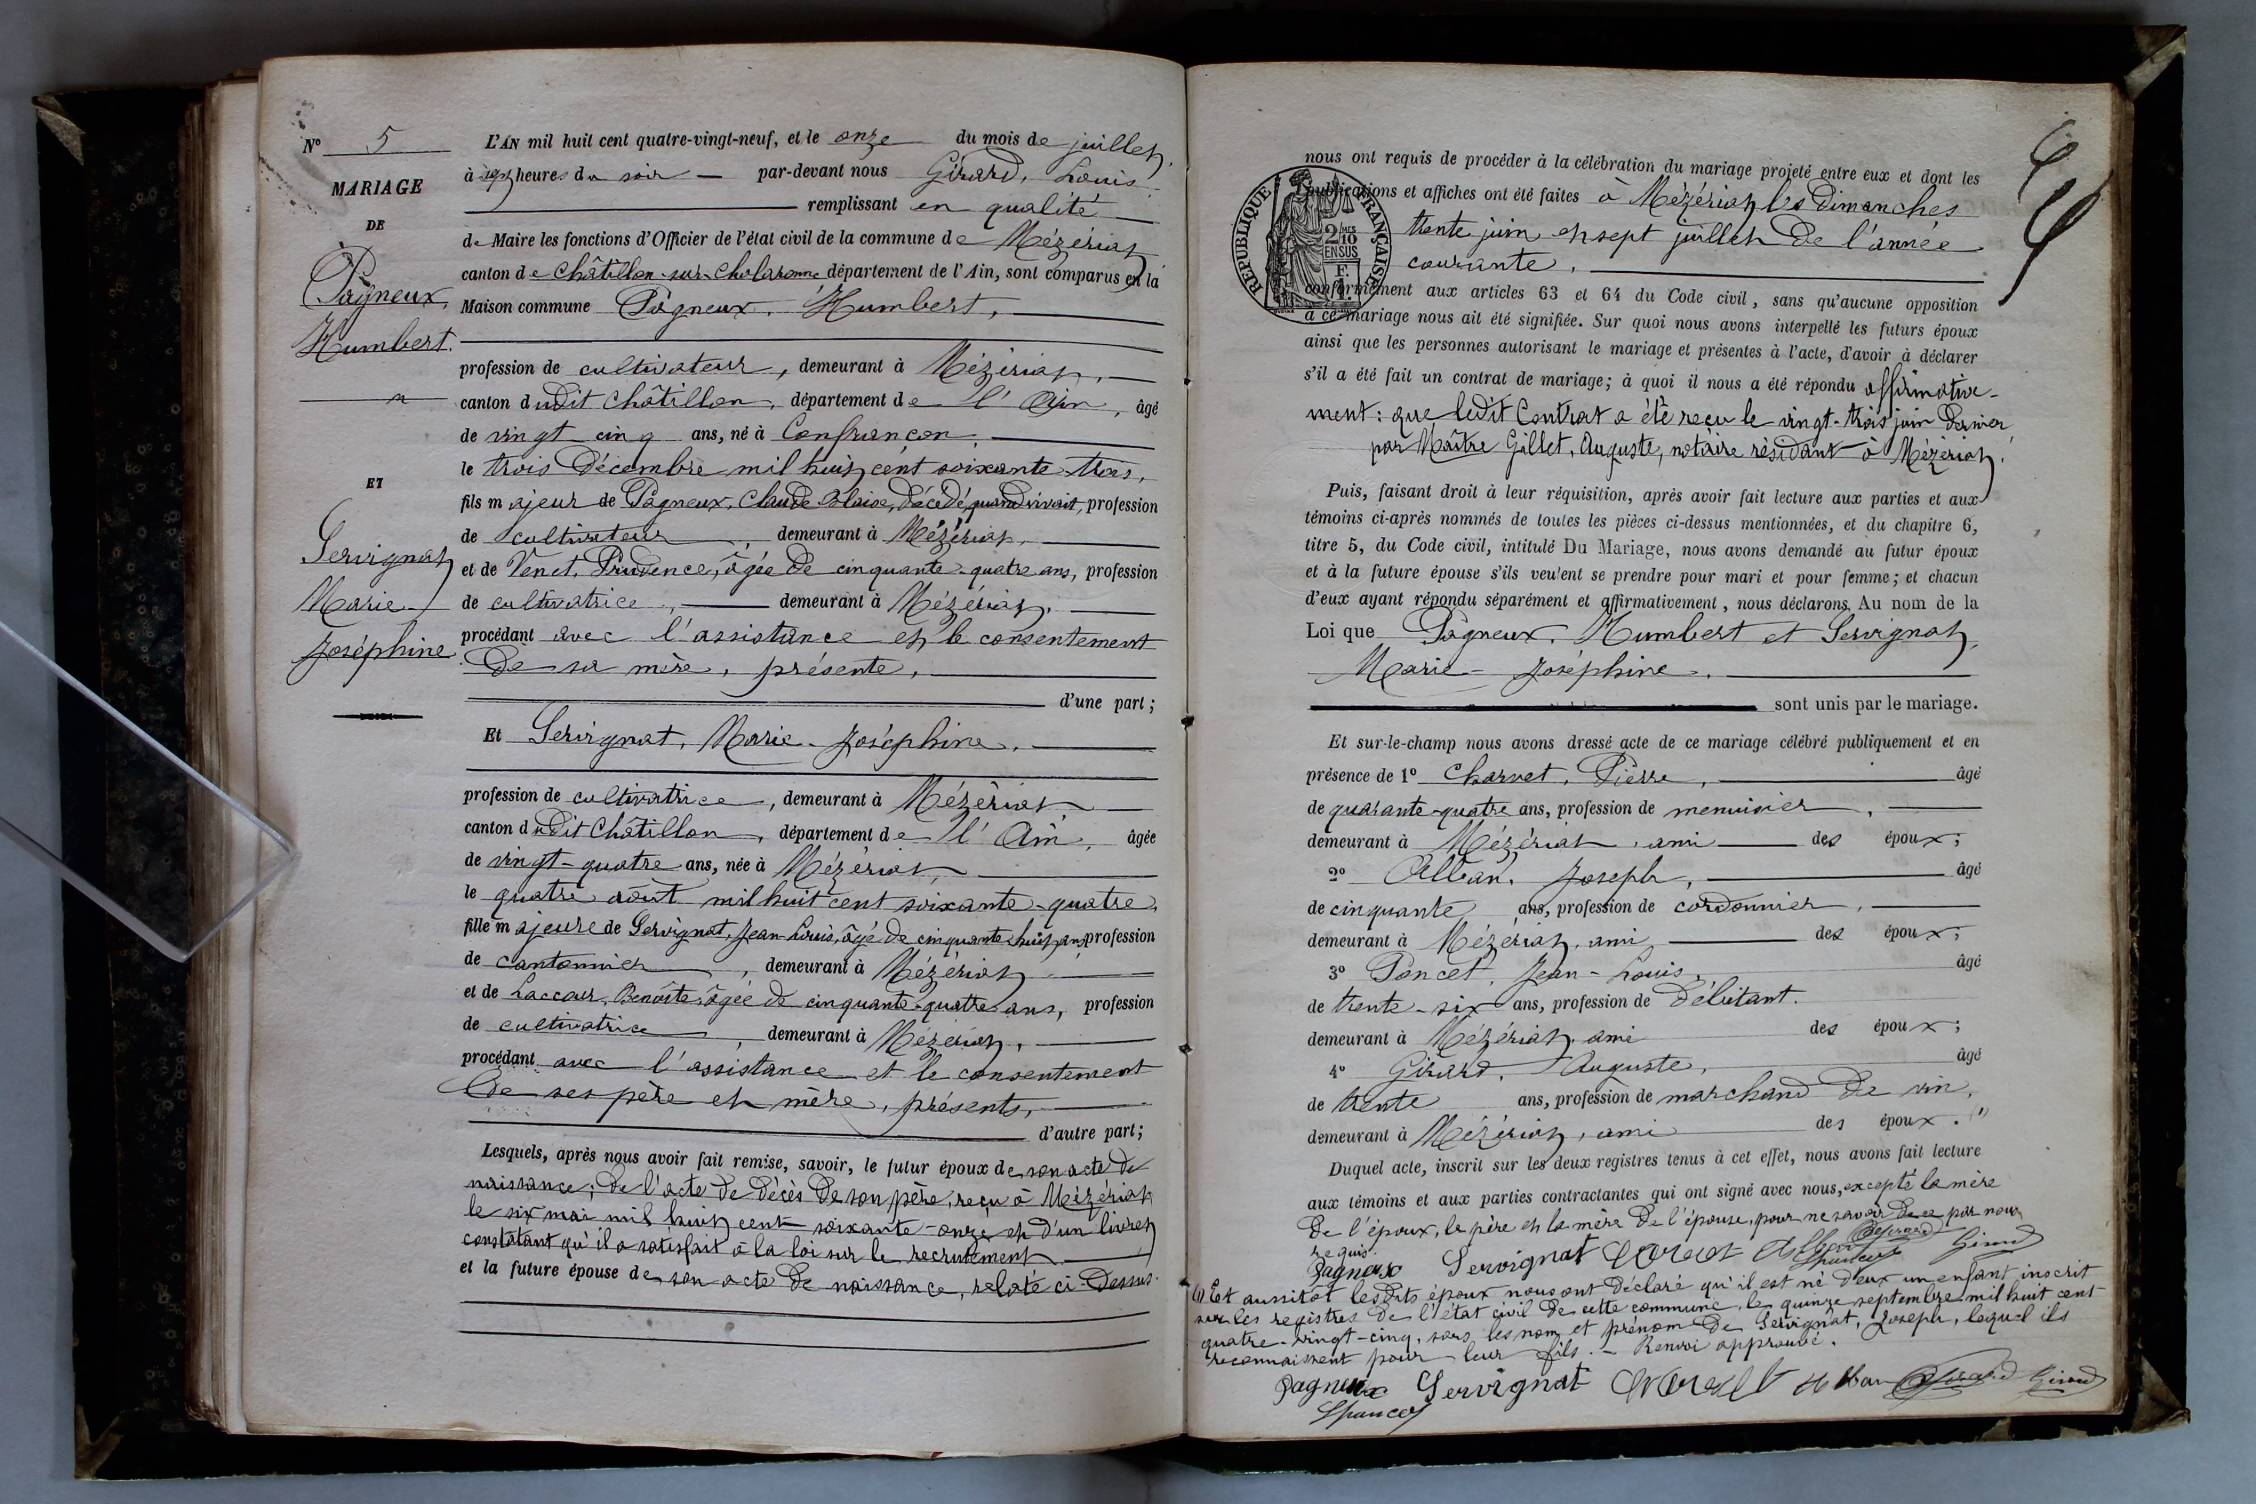 N° 5
MARIAGE
DE
Pagneux,
Humbert.
ET
Servignat
Marie-
Joséphine
L'AN mil huit cent quatre-vingt-neuf, et le onze du mois de juillet,
à sept heures du soir — par-devant nous Girard, Louis
remplissant en qualité
de Maire les fonctions d'Officier de l'état civil de la commune de Mézériat
canton de Châtillon-sur-Chalaronne département de l'Ain, sont comparus en la
Maison commune Pagneux, Humbert,
profession de cultivateur, demeurant à Mézériat,
canton dudit Châtillon, département de l'Ain, âgé
de vingt-cinq ans, né à Confrançon,
le trois Décembre mil huit cent soixante-trois,
fils majeur de Pagneux, Claude Blaise, Décédé, quand vivait, profession
de cultivateur, demeurant à Mézériat,
et de Venet, Prudence, âgée de cinquante-quatre ans, profession
de cultivatrice, demeurant à Mézériat,
procédant avec l'assistance et le consentement
de sa mère, présente,
d'une part;
Et Servignat, Marie-Joséphine,
profession de cultivatrice, demeurant à Mézériat,
canton dudit Châtillon, département de l'Ain, âgée
de vingt-quatre ans, née à Mézériat,
le quatre août mil huit cent soixante-quatre,
fille majeure de Servignat, Jean-Louis, âgé de cinquante-huit ans profession
de cantonnier, demeurant à Mézériat
et de Laccour, Benoîte, âgée de cinquante-quatre ans, profession
de cultivatrice, demeurant à Mézériat,
procédant avec l'assistance et le consentement
de ses père et mère, présents,
d'autre part;
Lesquels, après nous avoir fait remise, savoir, le futur époux de son acte de
naissance; de l'acte de décès de son père, reçu à Mézériat
le six mai mil huit cent soixante-onze et d'un livret
constatant qu'il a satisfait à la loi sur le recrutement
et la future épouse de son acte de naissance, relaté ci-dessus.
nous ont requis de procéder à la célébration du mariage projeté entre eux et dont les
publications et affiches ont été faites à Mézériat les Dimanches
trente juin et sept juillet de l'année
courante,
REPUBLIQUE FRANÇAISE
2/10 MES
EN SUS
F.
1.
conformément aux articles 63 et 64 du Code civil, sans qu'aucune opposition
à ce mariage nous ait été signifiée. Sur quoi nous avons interpellé les futurs époux
ainsi que les personnes autorisant le mariage et présentes à l'acte, d'avoir à déclarer
s'il a été fait un contrat de mariage; à quoi il nous a été répondu affirmative-
ment: que ledit Contrat a été reçu le vingt-trois juin dernier
par Maître Gillet, Auguste, notaire résidant à Mézériat.
Puis, faisant droit à leur réquisition, après avoir fait lecture aux parties et aux
témoins ci-après nommés de toutes les pièces ci-dessus mentionnées, et du chapitre 6,
titre 5, du Code civil, intitulé Du Mariage, nous avons demandé au futur époux
et à la future épouse s'ils veulent se prendre pour mari et pour femme; et chacun
d'eux ayant répondu séparément et affirmativement, nous déclarons Au nom de la
Loi que Pagneux, Humbert et Servignat,
Marie-Joséphine,
sont unis par le mariage.
Et sur-le-champ nous avons dressé acte de ce mariage célébré publiquement et en
présence de 1° Charvet, Pierre, âgé
de quarante-quatre ans, profession de menuisier,
demeurant à Mézériat, ami des époux;
2° Alban, Joseph, âgé
de cinquante ans, profession de cordonnier,
demeurant à Mézériat, ami des époux;
3° Poncet, Jean-Louis, âgé
de trente-six ans, profession de débitant.
demeurant à Mézériat, ami des époux;
4° Girard, Auguste, âgé
de trente ans, profession de marchand de vin,
demeurant à Mézériat, ami des époux. (1)
Duquel acte, inscrit sur les deux registres tenus à cet effet, nous avons fait lecture
aux témoins et aux parties contractantes qui ont signé avec nous, excepté la mère
de l'époux, le père et la mère de l'épouse, pour ne savoir de ce par nous
requis.
Pagneux Servignat Charvet Alban Girard Girard
JPoncet
(1) Et aussitôt lesdits époux nous ont déclaré qu'il est né d'eux un enfant inscrit
sur les registres de l'état civil de cette commune, le quinze septembre mil huit cent
quatre-vingt-cinq, sous les nom et prénom de Servignat, Joseph, lequel ils
reconnaissent pour leur fils. — Renvoi approuvé.
Pagneux Servignat Charvet Alban Girard Girard
JPoncet